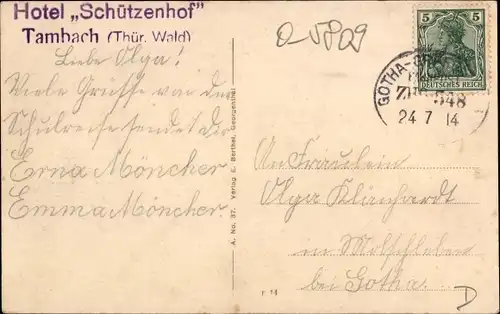 Hotel „Schützenhof"
Tambach (Thür. Wald)
Liebe Olga!
Viele Grüße von der
Schulreise sendet dir
Erna Möncher
Emma Möncher.
A. No. 37. Verlag E. Barthel, Georgenthal
5 5
DEUTSCHES REICH
GOTHA-GR
548
24 7 14
An Fräulein
Olga
in Molschleben
bei Gotha.
F 14
D